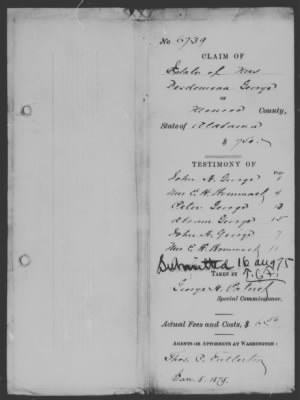 No 6739
CLAIM OF
Estate of Mrs
Desdemona George
OF
Monroe County,
State of Alabama
$
TESTIMONY OF
Page
John A. George 1
Mrs E. R. 4
Peter George 12
Abram George 15
John A. George 7
Mrs E. R. 11
Submitted 16 aug 75
TAKEN BY
George H. Patrick
Special Commissioner.
Actual Fees and Costs, $
AGENTS OR ATTORNEYS AT WASHINGTON:
Thos. C. Fullerton
Jan 5. 1875.